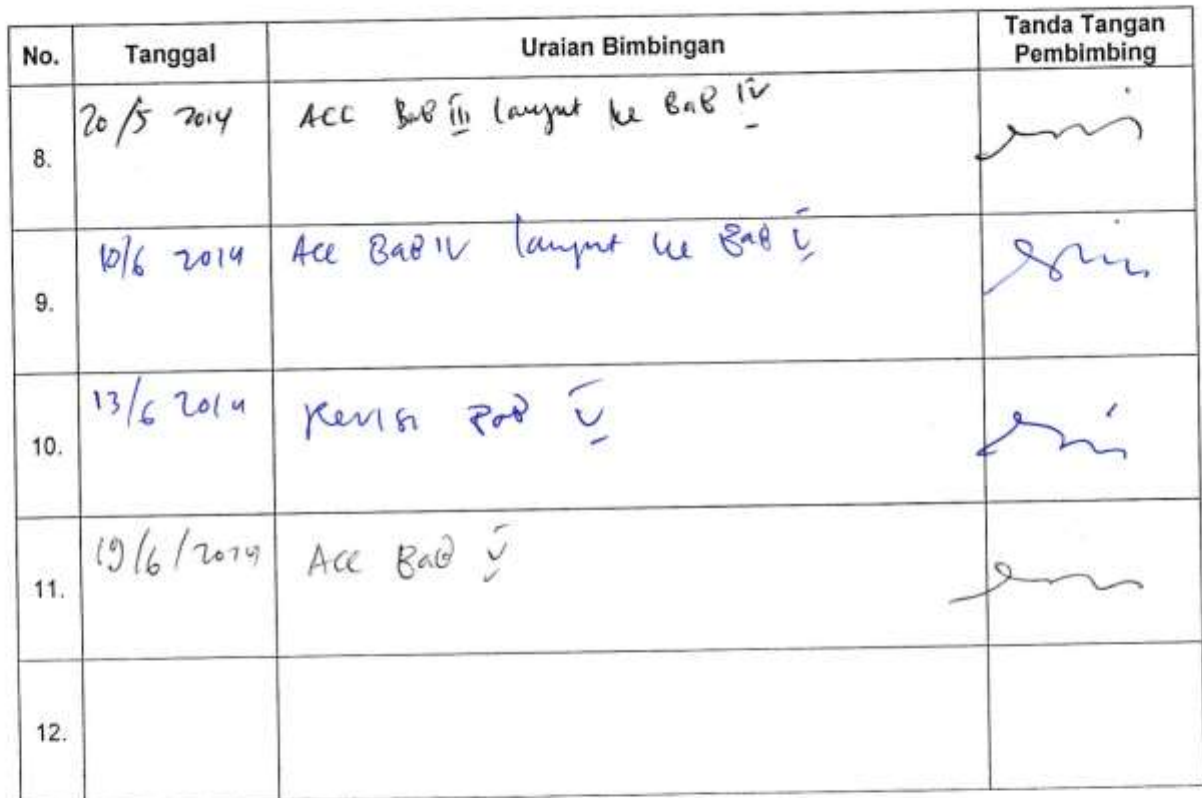 No. Tanggal Uraian Bimbingan Tanda Tangan Pembimbing
8. 20/5 2014 ACC BaB III lanjut ke BaB IV
9. 10/6 2014 Acc BaB IV lanjut ke BaB V
10. 13/6 2014 Revisi BaB V
11. 19/6/2014 Acc BaB V
12.